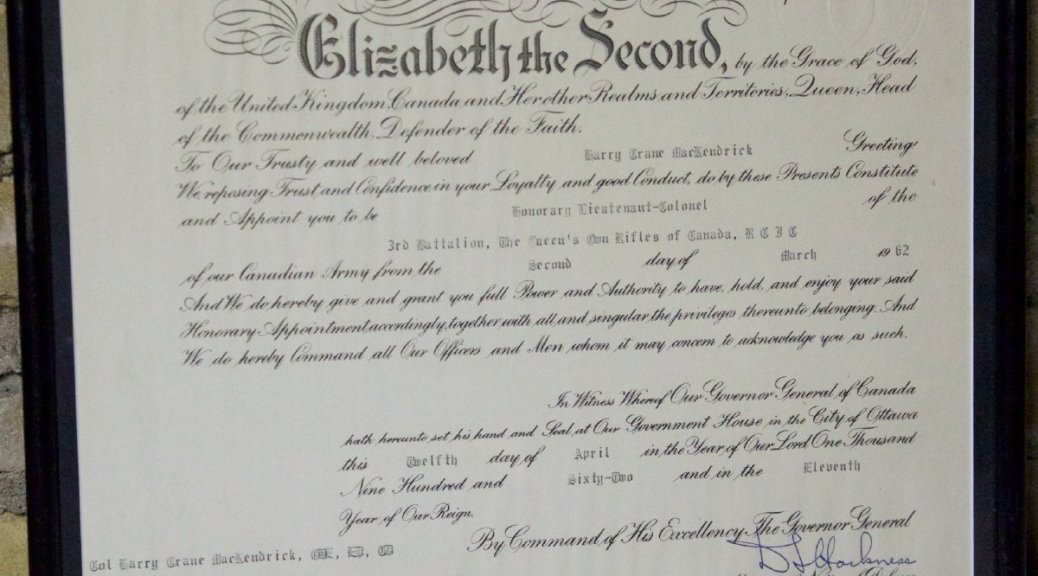 Elizabeth the Second, by the Grace of God,
of the United Kingdom, Canada and Her other Realms and Territories, Queen, Head
of the Commonwealth, Defender of the Faith.
To Our Trusty and well beloved Harry Crane MacKendrick Greeting:
We, reposing Trust and Confidence in your Loyalty and good Conduct, do by these Presents Constitute
and Appoint you to be Honorary Lieutenant-Colonel of the
3rd Battalion, The Queen's Own Rifles of Canada, R C I C
of our Canadian Army from the Second day of March 1962
And We do hereby give and grant you full Power and Authority to have, hold, and enjoy your said
Honorary Appointment accordingly, together with all and singular the privileges thereunto belonging. And
We do hereby Command all Our Officers and Men whom it may concern to acknowledge you as such.
In Witness Whereof Our Governor General of Canada
hath hereunto set his hand and Seal at Our Government House in the City of Ottawa
this Twelfth day of April in the Year of Our Lord One Thousand
Nine Hundred and Sixty-Two and in the Eleventh
Year of Our Reign.
By Command of His Excellency The Governor General
Harkness
Col Harry Crane MacKendrick,